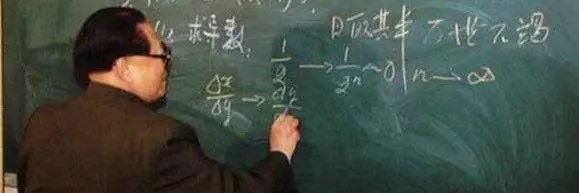 求导数. 日取其半 万世不竭
1/2 → 1/2ⁿ ~ 0 n → ∞
Δx/Δy → dy